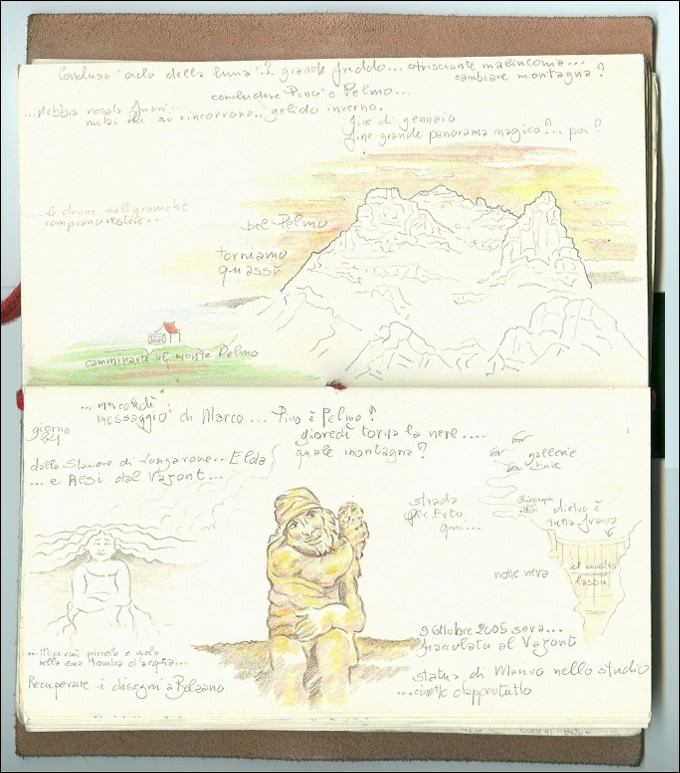 Concluso "ciclo della luna".. grande freddo... strisciante malinconia...
cambiare montagna?
concludere Pino e Pelmo...
...nebbia rosata fuori...
nubi che si rincorrono.. gelido inverno.
fine di gennaio
fine grande panorama magico?... poi?
...le donne
comprano vestiti...
bel Pelmo
torniamo
quassù
camminare il monte Pelmo
... mercoledì
messaggio di Marco... Pino è Pelmo?
giorno
giovedì torna la neve....
quale montagna?
dalla Stavore di Longarone.. Elda
... e Resi dal Vajont...
gallerie
buie
strada
per Erto
qui...
dietro è
tutta frana
il muro
lassù
notte nera
9 Ottobre 2005 sera...
fiaccolata al Vajont
...Mira così piccola e sola
nella sua tomba d'acqua...
Recuperare i disegni a Bolzano
statua di Mauro nello studio
...civette dappertutto